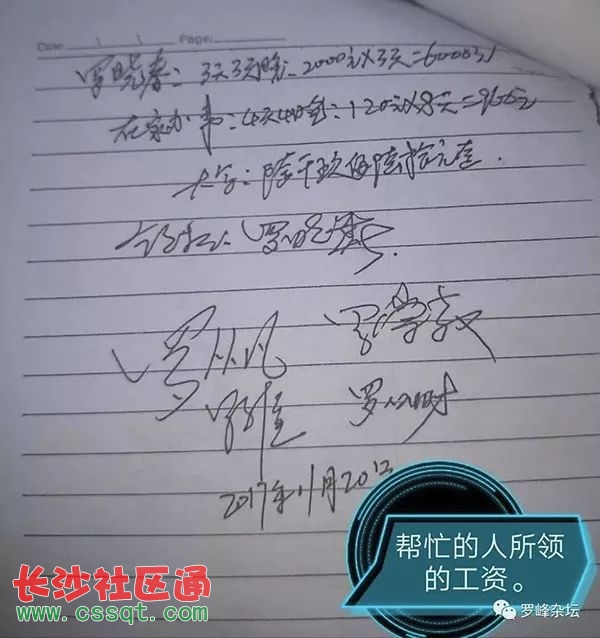 Date: Page:
罗晓春:3天3晚 2000元×3天=6000元
在家办事:4天4晚:120元×8天=960元
大字:陆千玖佰陆拾元整.
罗从凡
2017年11月20日
帮忙的人所领
的工资。
长沙社区通
www.cssqt.com
罗峰杂坛